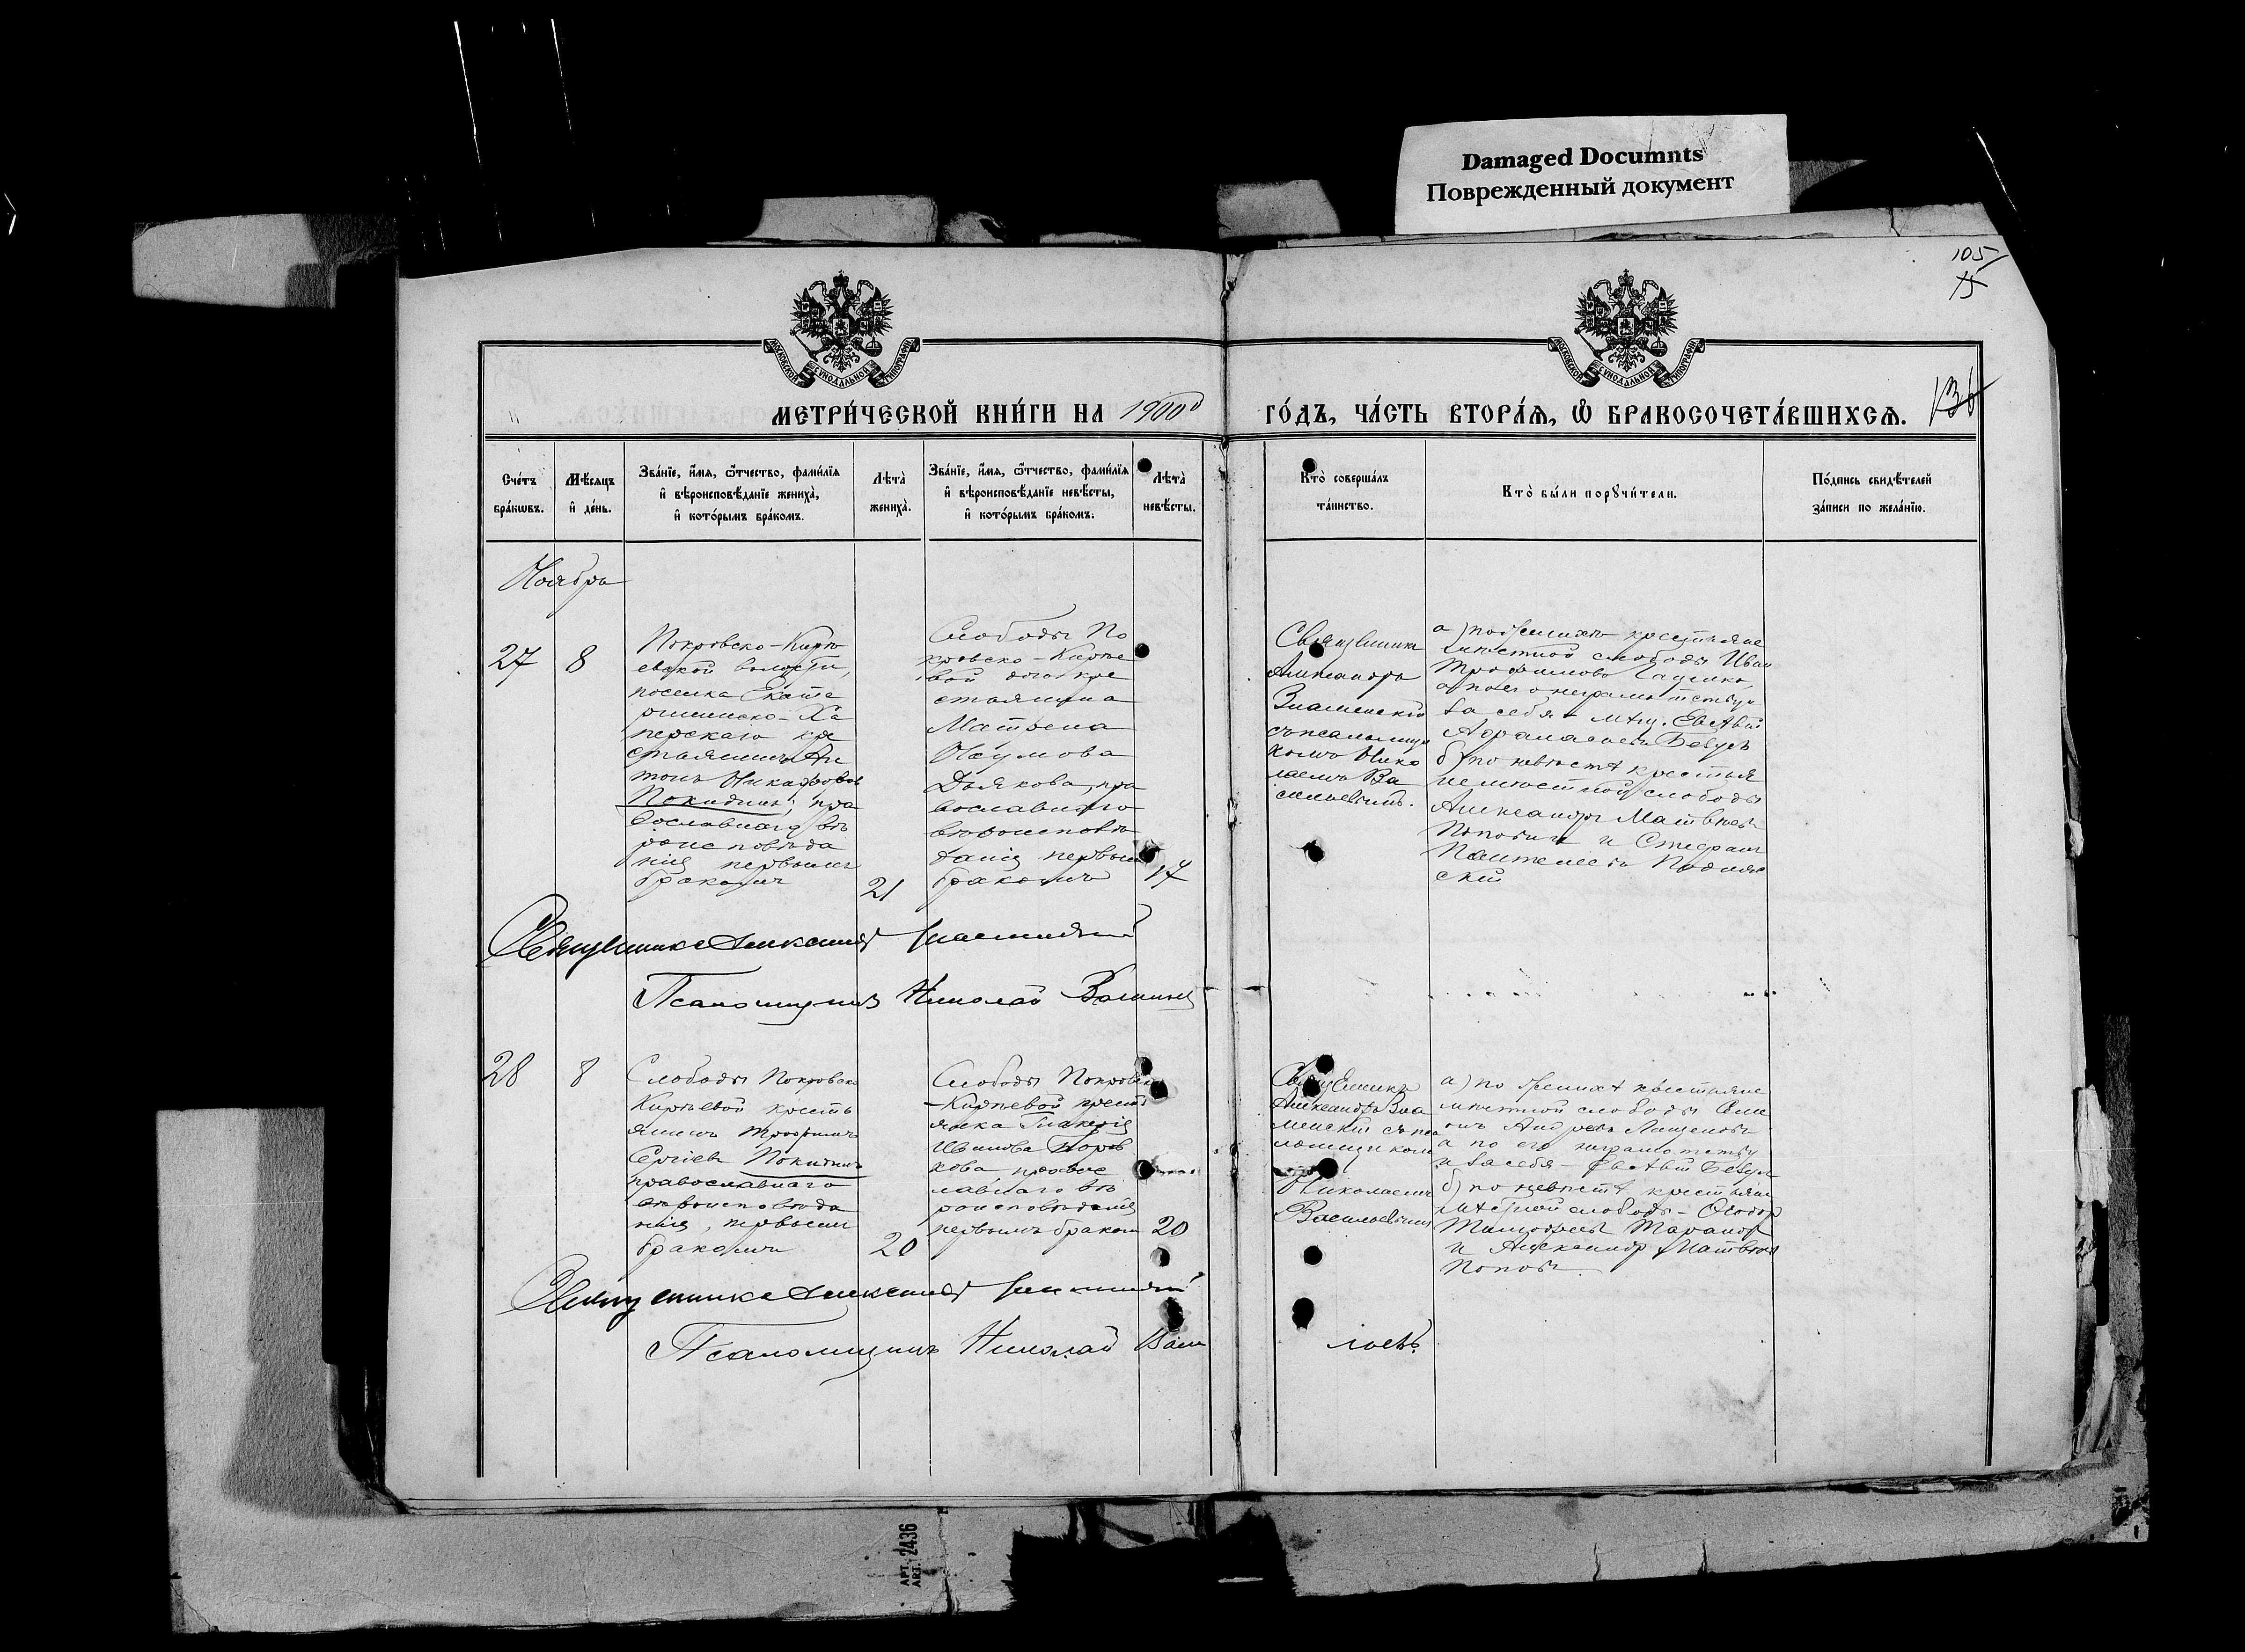 Damaged Documnts
Поврежденный документ
105
15
136
МЕТРИ́ЧЕСКОЙ КНИ́ГИ НА 1900
ГО́ДЪ, ЧА́СТЬ ВТОРА́Я, Ѡ БРАКОСОЧЕТА́ВШИХСЯ.
МОСКОВСКОЙ СѴНОДАЛЬНОЙ ТИПОГРАФІИ
МОСКОВСКОЙ СѴНОДАЛЬНОЙ ТИПОГРАФІИ
Сче́тъ
бра́кѡвъ.
Мѣ́сяцъ
и҆ де́нь.
Зва́ніе, и҆́мя, ѻ҆́тчество, фами́лія
и҆ вѣроисповѣ́даніе жениха̀,
и҆ кото́рымъ бра́комъ.
Лѣта̀
жениха̀.
Зва́ніе, и҆́мя, ѻ҆́тчество, фами́лія
и҆ вѣроисповѣ́даніе невѣ́сты,
и҆ кото́рымъ бра́комъ.
Лѣта̀
невѣ́сты.
Кто̀ соверша́лъ
та́инство.
Кто̀ бы́ли порꙋчи́тели.
По́дпись свидѣ́телей
за́писи по жела́нію.
Ноября
27
8
Покровско-Кирѣ
евской волости,
поселка Екате
рининско-Ха
перскаго кре
стьянинъ Ан
тонъ Никифоровъ
Покидинъ, пра
вославнаго вѣ
роисповѣда
нія первымъ
бракомъ
21
Слободы По
кровско-Кирѣе
вой кре
стьянина
Матрена
Наумова
Дьякова, пра
вославнаго
вѣроисповѣ
данія первым
бракомъ
17
Священникъ
Александръ
Знаменскій
съ псаломщи
комъ Нико
лаемъ Ва
сильевымъ.
а) по женихѣ крестьяне
мѣстной слободы Иван
Трофимовъ
а по его неграмотству и
за себя
б) по невѣстѣ крестья
не мѣстной слободы
Александръ Матвѣевъ
Поповъ и Стефанъ
Пантелеевъ
скій
Священникъ Александръ Знаменскій
Псаломщикъ Николай
28
8
Слободы Покровско
Кирѣевой кресть
янинъ Трофимъ
Сергіевъ Покидинъ
православнаго
вѣроисповѣда
нія, первымъ
бракомъ
20
Слободы Покровско
-Кирѣевой кресть
янка Гликерія
Иванова
правос
лавнаго вѣ
роисповѣданія
первымъ браком
20
Священникъ
Александръ Зна
менскій съ пса
ломщиком
Николаемъ
Васильевымъ
а) по женихѣ крестьяне
мѣстной слободы Сем
енъ Андреевъ
а по его неграмотству
и за себя
б) по невѣстѣ крестьяне
мѣстной слободы - Ѳеодор
Тимофеевъ Таранъ
и Александръ Матвѣевъ
Поповъ.
Священникъ Александръ Знаменскій
Псаломщикъ Николай Васи
льевъ.
АРТ. 2436
ART.